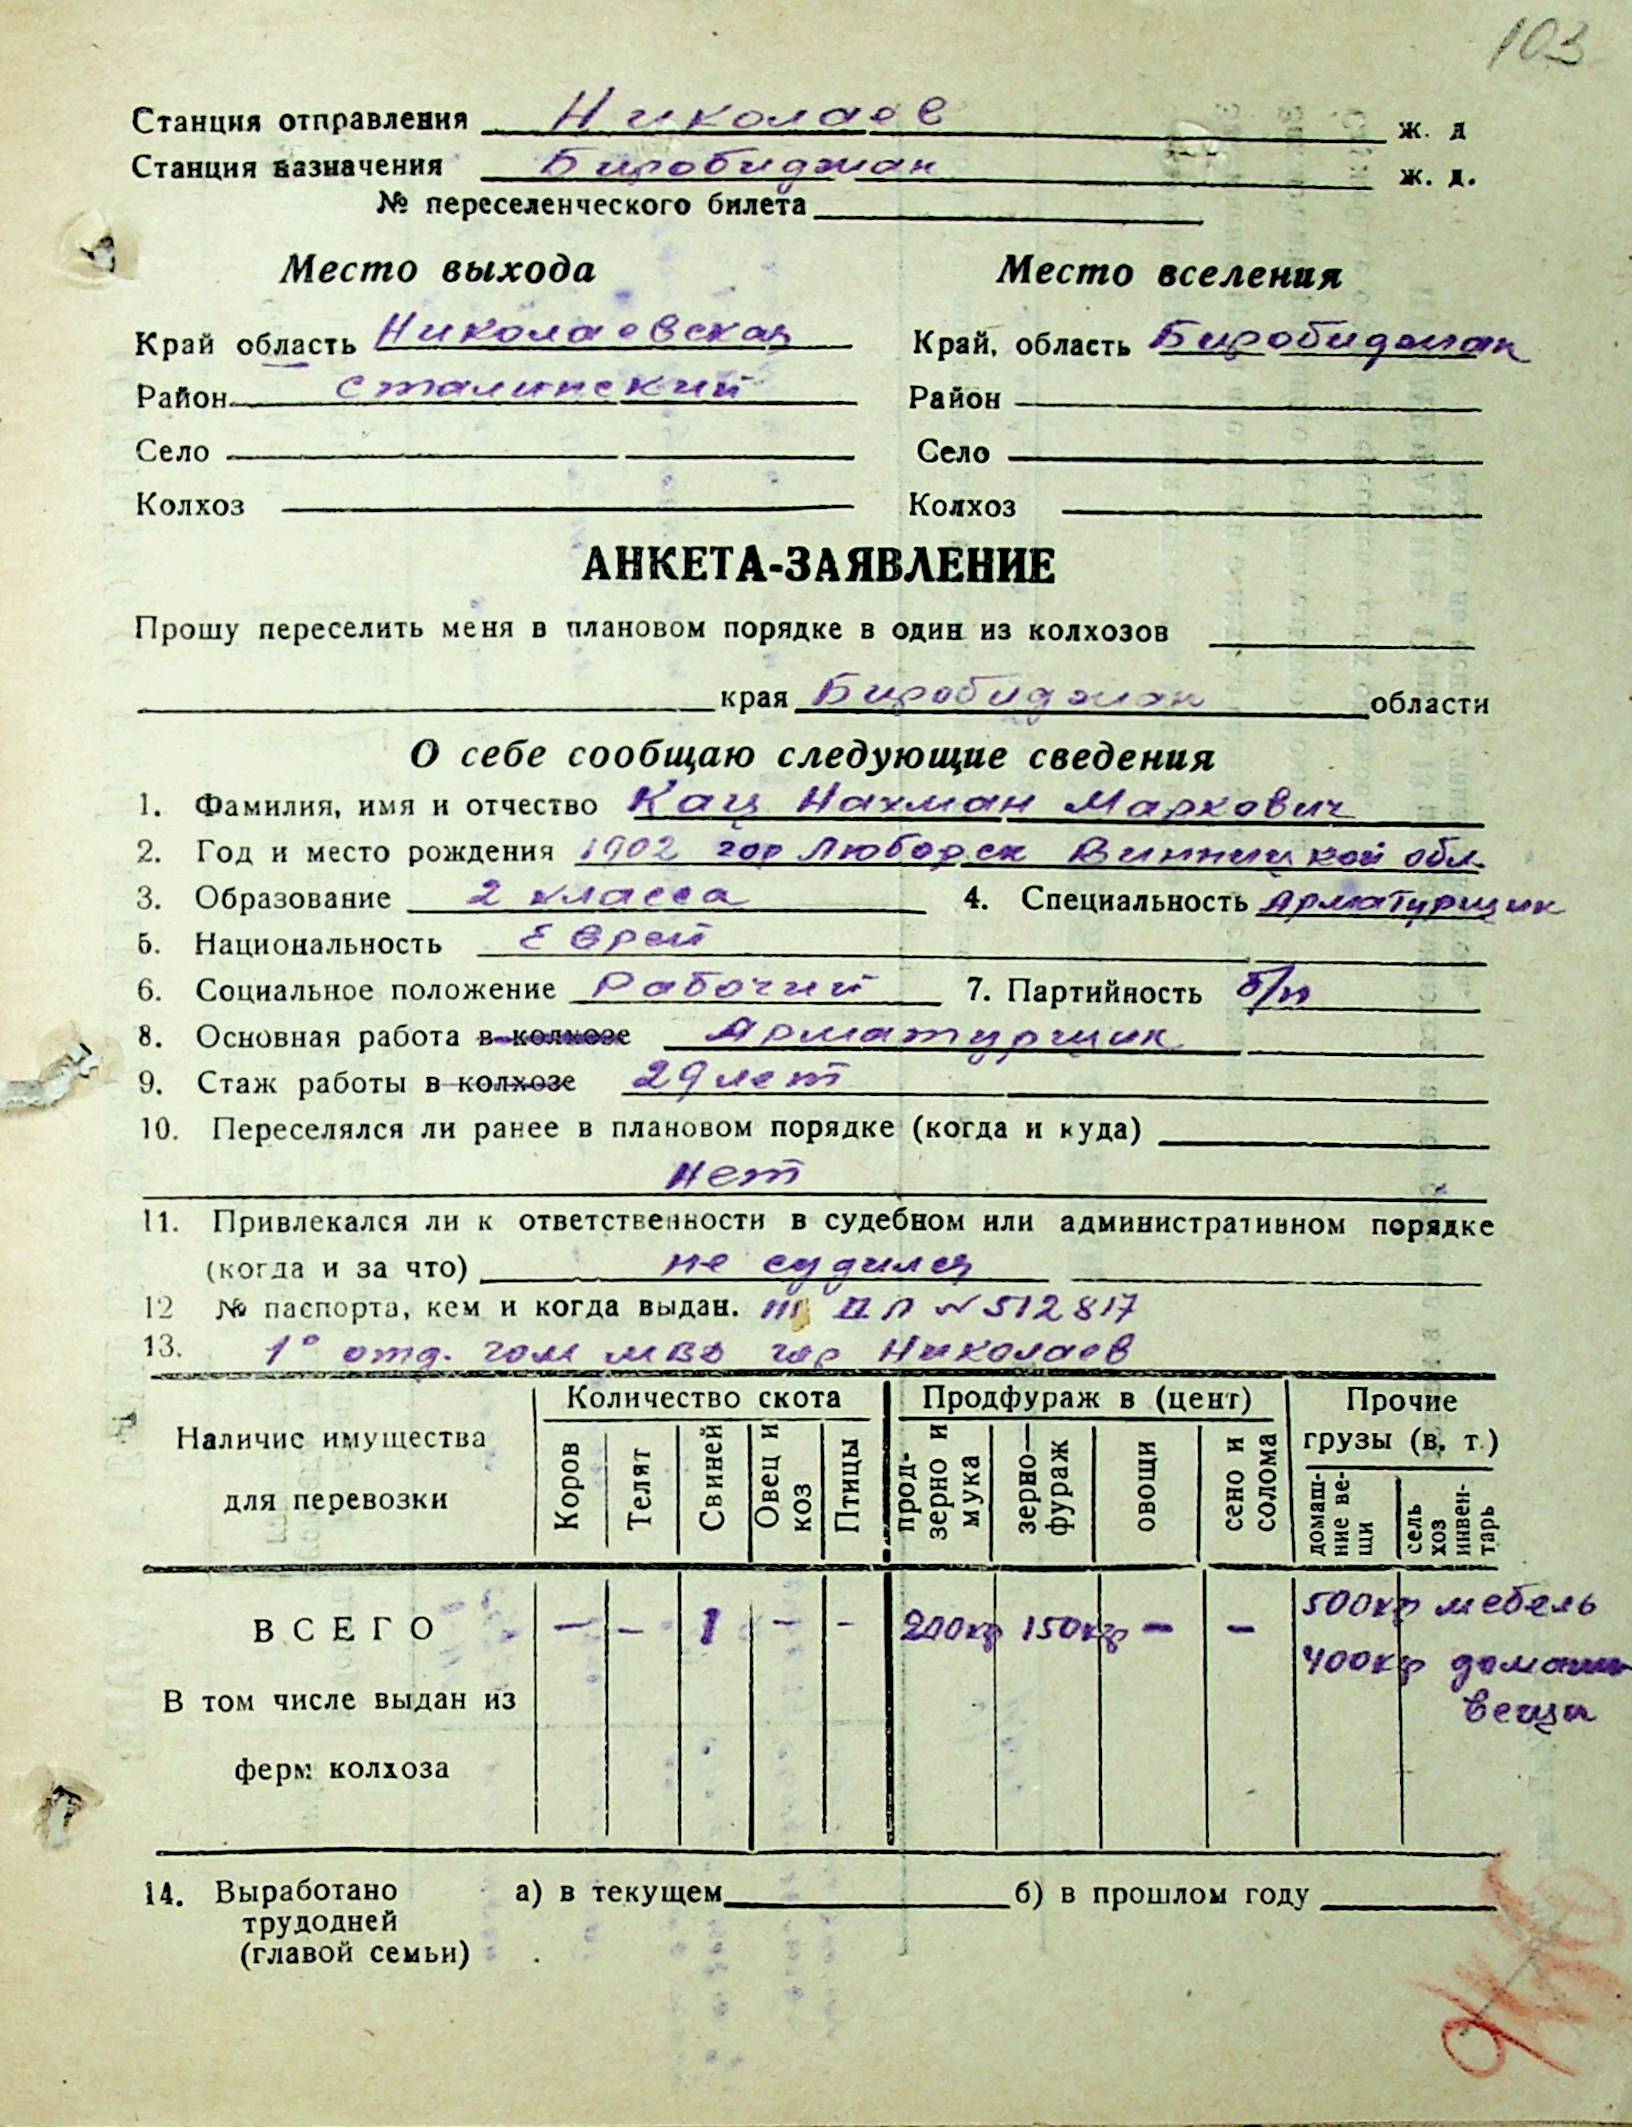 103
Станция отправления Николаев ж. д
Станция назначения Биробиджан ж. д.
№ переселенческого билета
Место выхода Место вселения
Край область Николаевская Край, область Биробиджан
Район Сталинский Район
Село Село
Колхоз Колхоз
АНКЕТА-ЗАЯВЛЕНИЕ
Прошу переселить меня в плановом порядке в один из колхозов
края Биробиджан области
О себе сообщаю следующие сведения
1. Фамилия, имя и отчество Кац Нахман Маркович
2. Год и место рождения 1902 гор Люборск Винницкой обл.
3. Образование 2 класса 4. Специальность Арматурщик
5. Национальность Еврей
6. Социальное положение Рабочий 7. Партийность б/п
8. Основная работа в колхозе Арматурщик
9. Стаж работы в колхозе 29 лет
10. Переселялся ли ранее в плановом порядке (когда и куда)
нет
11. Привлекался ли к ответственности в судебном или административном порядке
(когда и за что) не судился
12 № паспорта, кем и когда выдан. III ДЛ № 512817
13. 1° отд. гом мвд гор Николаев
Наличие имущества для перевозки Количество скота Продфураж в (цент) Прочие грузы (в. т.)
Коров Телят Свиней Овец и коз Птицы прод-зерно и мука зерно—фураж овощи сено и солома домаш-ние ве-щи сель хоз инвен-тарь
ВСЕГО — — 1 — - 200кг 150кг — — 500кг мебель
400кг домашн
вещи
В том числе выдан из
ферм колхоза
14. Выработано а) в текущем б) в прошлом году
трудодней
(главой семьи)